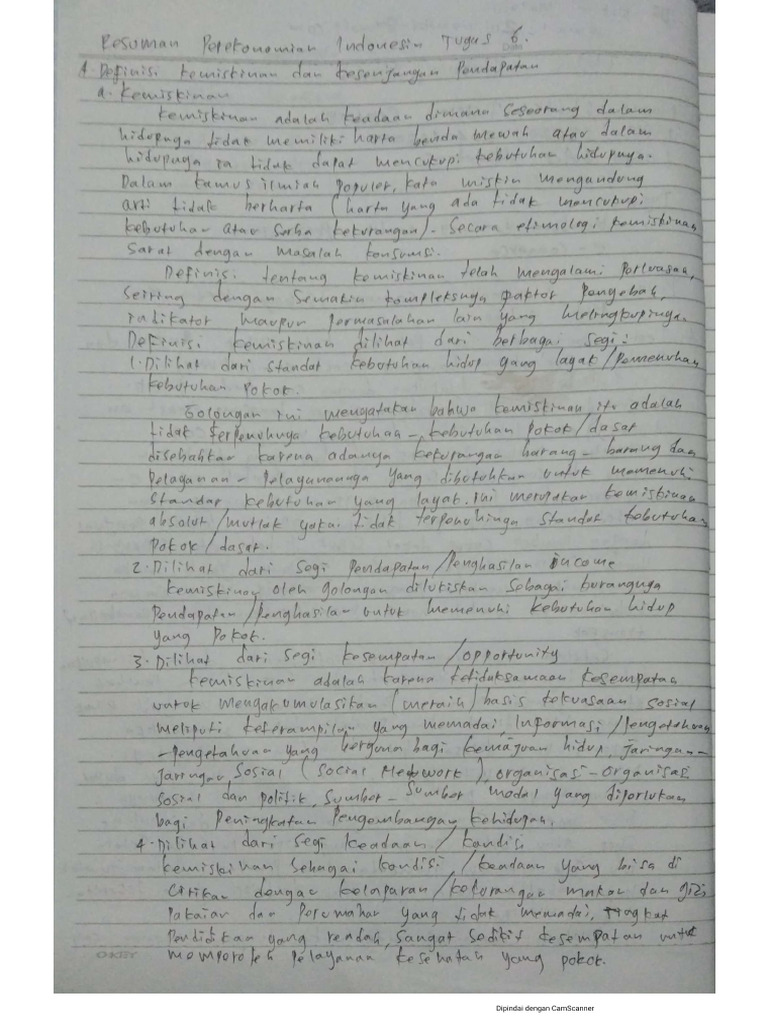 Resuman Perekonomian Indonesia Tugas 6.
A. Definisi kemiskinan dan kesenjangan Pendapatan
a. Kemiskinan
kemiskinan adalah keadaan dimana seseorang dalam
hidupnya tidak memiliki harta benda mewah atau dalam
hidupnya ia tidak dapat mencukupi kebutuhan hidupnya.
Dalam kamus ilmiah populer, kata miskin mengandung
arti tidak berharta (harta yang ada tidak mencukupi
kebutuhan atau serba kekurangan). Secara etimologi kemiskinan
sarat dengan masalah konsumsi.
Definisi tentang kemiskinan telah mengalami perluasan,
seiring dengan semakin kompleksnya faktor penyebab,
indikator maupun permasalahan lain yang melingkupinya.
Definisi kemiskinan dilihat dari berbagai segi:
1. Dilihat dari standar kebutuhan hidup yang layak/pemenuhan
kebutuhan pokok.
Golongan ini mengatakan bahwa kemiskinan itu adalah
tidak terpenuhnya kebutuhan-kebutuhan pokok/dasar
disebabkan karena adanya kekurangan barang-barang dan
pelayanan-pelayanannya yang dibutuhkan untuk memenuhi
standar kebutuhan yang layak. ini merupakan kemiskinan
absolut/mutlak yakni tidak terpenuhinya standar kebutuhan
pokok/dasar.
2. Dilihat dari segi Pendapatan/Penghasilan income
kemiskinan oleh golongan dilukiskan sebagai kurangnya
pendapatan/penghasilan untuk memenuhi kebutuhan hidup
yang pokok.
3. Dilihat dari segi kesempatan/opportunity
kemiskinan adalah karena ketidaksamaan kesempatan
untuk mengakumulasikan (meraih) basis kekuasaan sosial
meliputi keterampilan yang memadai, informasi/pengetahuan
-pengetahuan yang berguna bagi kemajuan hidup jaringan-
jaringan sosial (social Network), organisasi-organisasi
sosial dan politik, sumber-sumber modal yang diperlukan
bagi peningkatan pengembangan kehidupan.
4. Dilihat dari segi keadaan/kondisi
kemiskinan sebagai kondisi/keadaan yang bisa di
cirikan dengan kelaparan/kekurangan makan dan gizi
pakaian dan perumahan yang tidak memadai, Tingkat
Pendidikan yang rendah, sangat sedikit kesempatan untuk
memperoleh pelayanan kesehatan yang pokok.
Dipindai dengan CamScanner